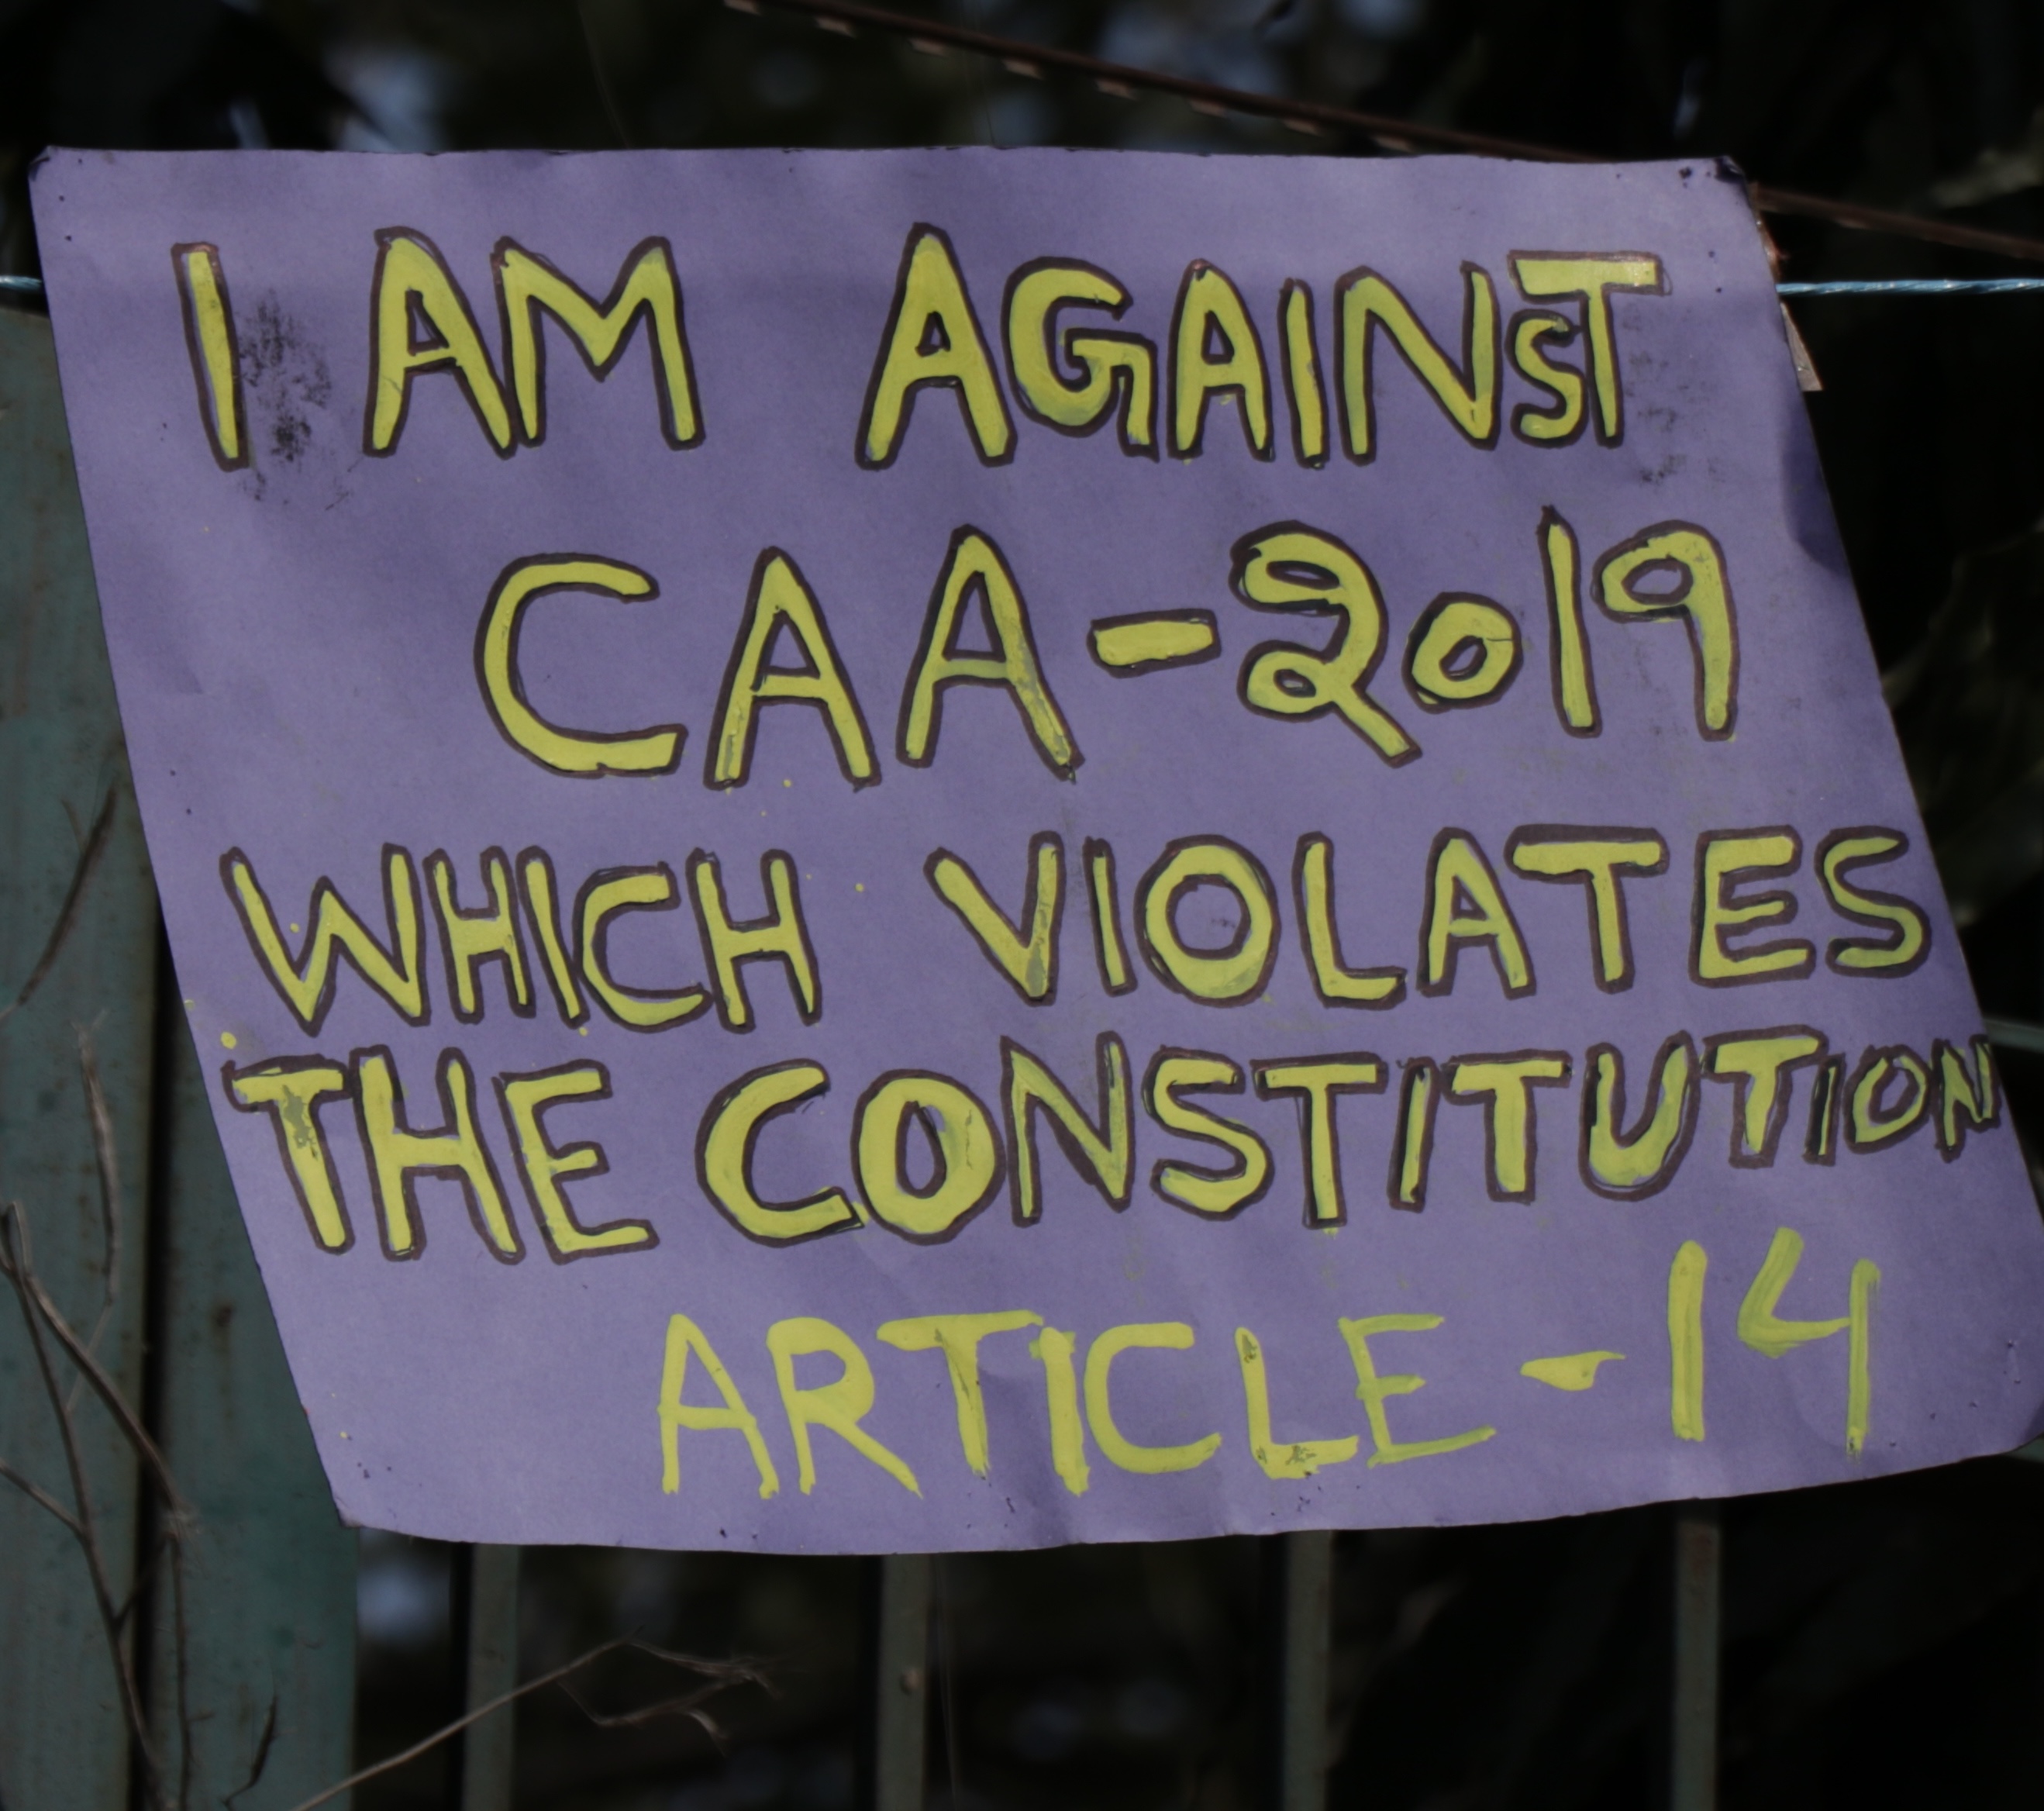 I AM AGAINST
CAA-2019
WHICH VIOLATES
THE CONSTITUTION
ARTICLE - 14